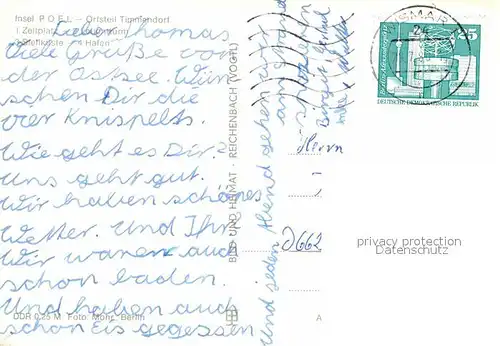 Insel POEL – Ortsteil Timmendorf
1 Zeltplatz
3 Steilküste 4 Hafen
Lieber Thomas
Viele Grüße von
der Ostsee. Wün
schen Dir die
vier Knispels.
Wie geht es Dir?
Uns geht gut.
Wir haben schönes
Wetter. Und Ihr
Wir waren auch
schon baden.
Und haben auch
schon Eis gegessen
Und jeden Abend sehen wir
DDR 0,25 M Foto: Mohr, Berlin
BILD UND HEIMAT · REICHENBACH (VOGTL)
WISMAR
24
25
DEUTSCHE DEMOKRATISCHE REPUBLIK
Herrn
0662
privacy protection
Datenschutz
A